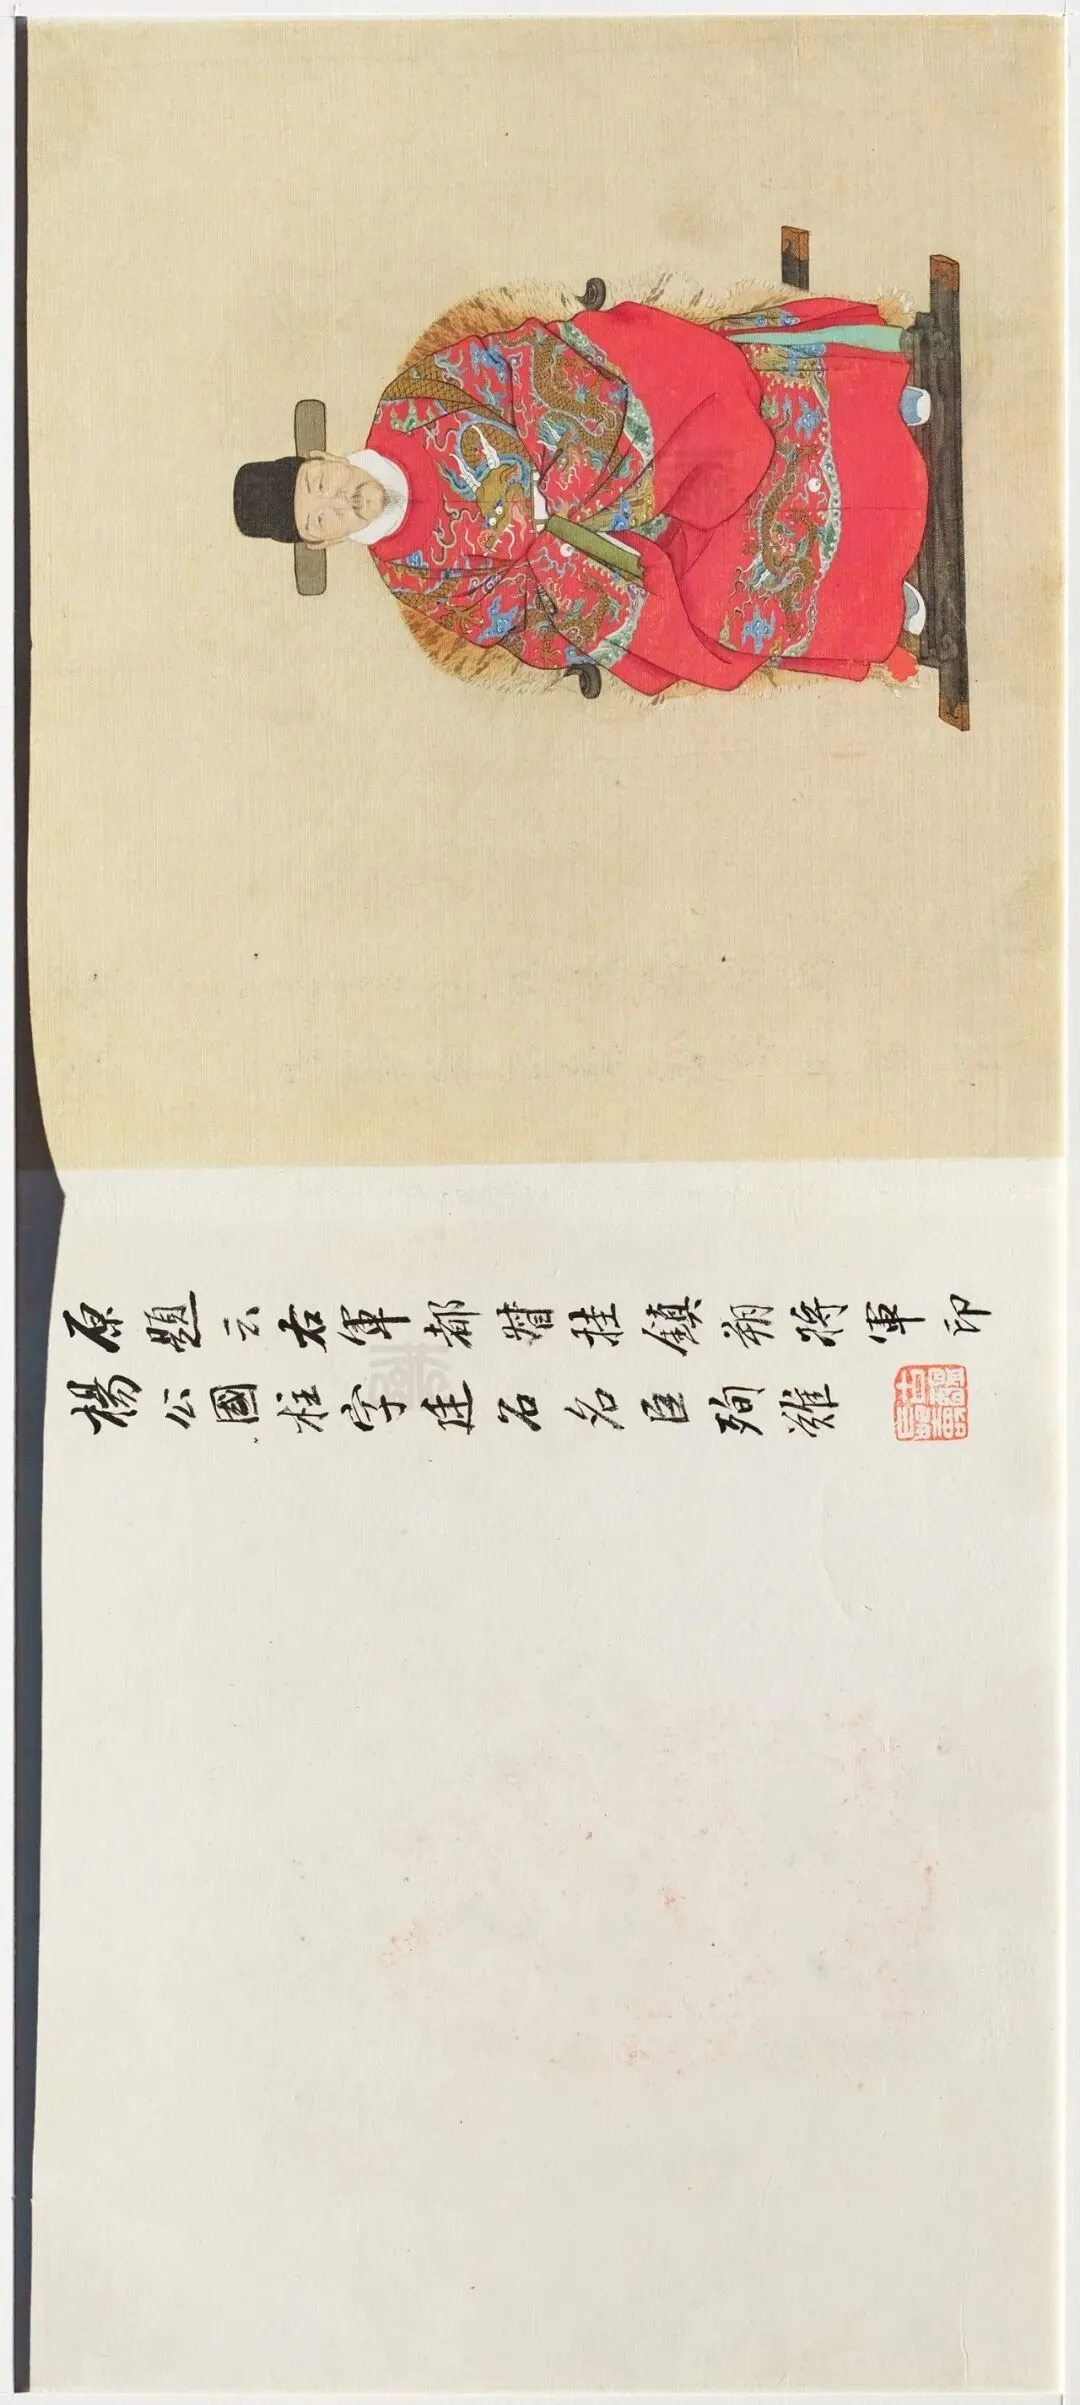 原題云右軍都督挂鎮朔將軍印
楊公國柱字廷石名臣殉難